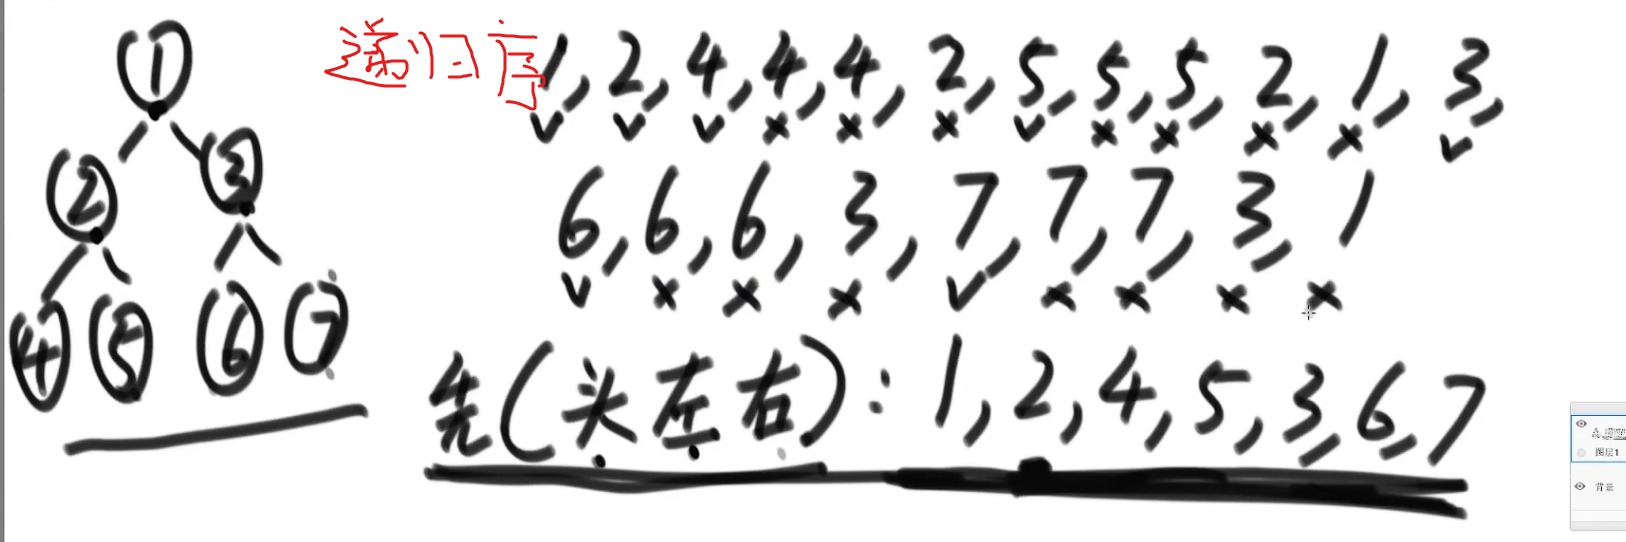 ①
②
③
④ ⑤ ⑥ ⑦
递归序 1, 2, 4, 4, 4, 2, 5, 5, 5, 2, 1, 3,
✓ ✓ ✓ × × × ✓ × × × × ✓
6, 6, 6, 3, 7, 7, 7, 3, 1
✓ × × × ✓ × × × ×
先(头左右): 1, 2, 4, 5, 3, 6, 7
图层1
背景